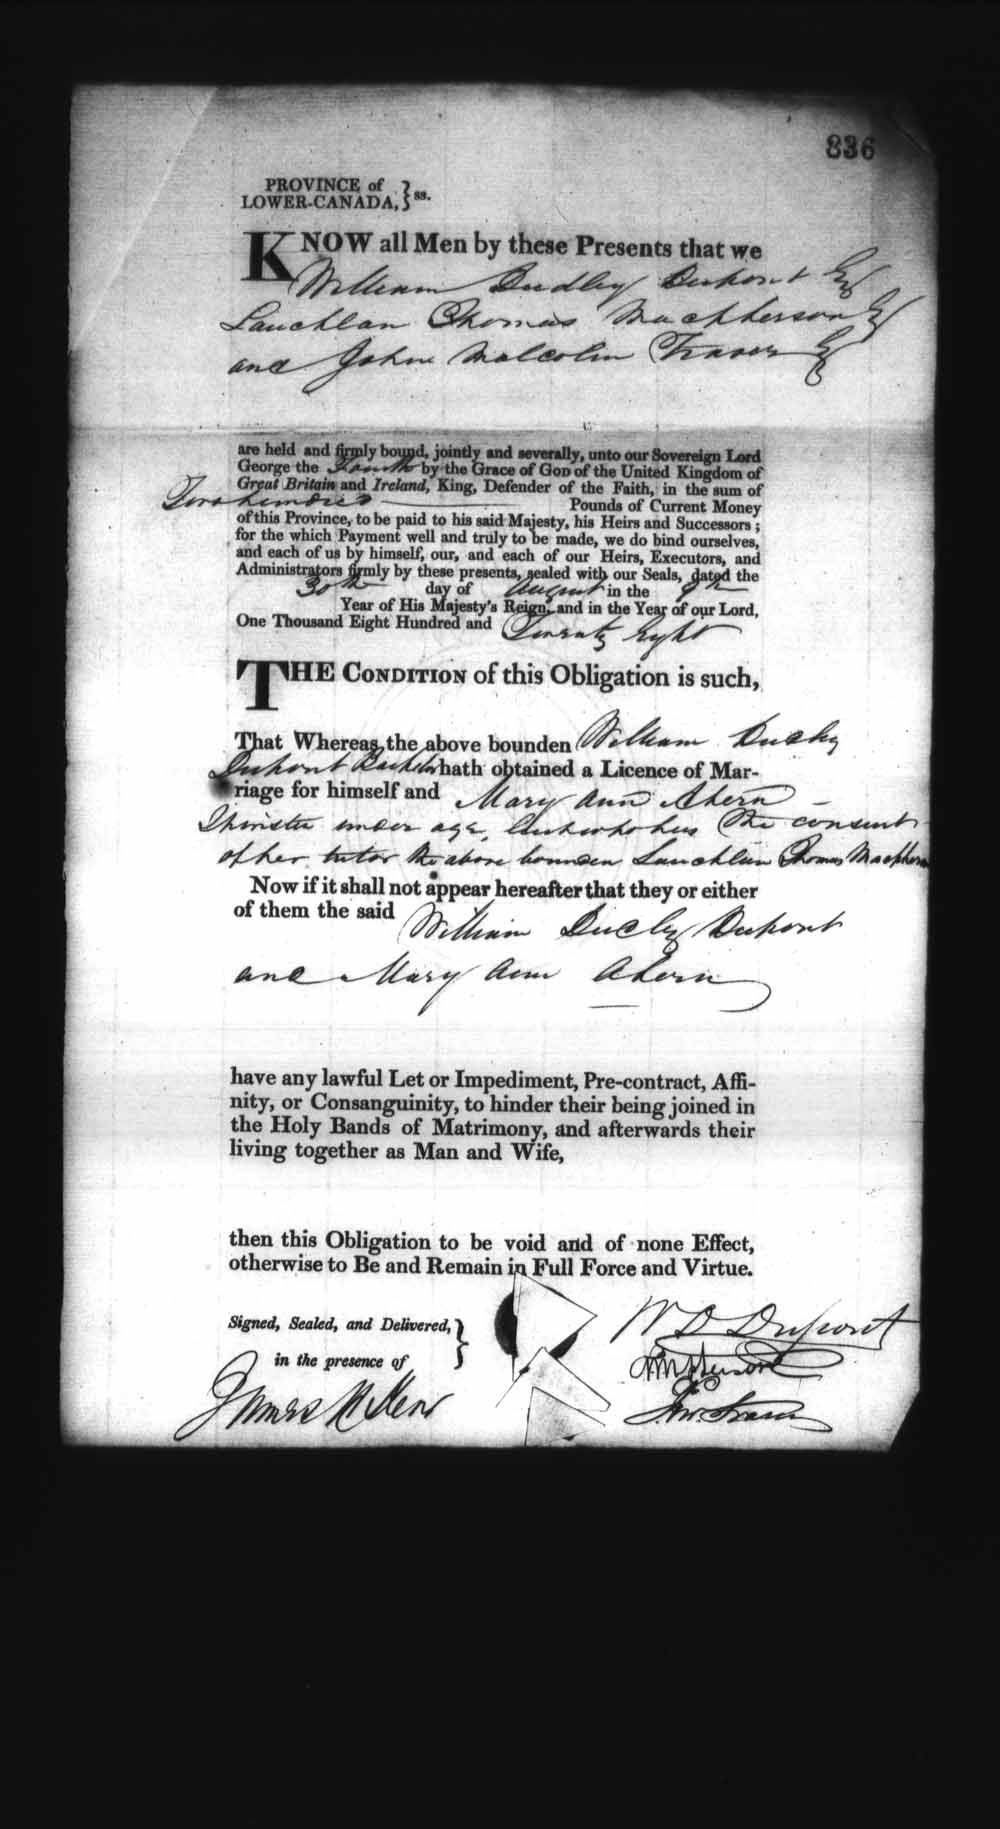 836
PROVINCE of
LOWER-CANADA, } ss.
KNOW all Men by these Presents that we
William Dudley Dupont Esq
Lauchlan Thomas Macpherson Esq
and John Malcolm Fraser Esq
are held and firmly bound, jointly and severally, unto our Sovereign Lord
George the Fourth by the Grace of GOD of the United Kingdom of
Great Britain and Ireland, King, Defender of the Faith, in the sum of
Two hundred Pounds of Current Money
of this Province, to be paid to his said Majesty, his Heirs and Successors;
for the which Payment well and truly to be made, we do bind ourselves,
and each of us by himself, our, and each of our Heirs, Executors, and
Administrators firmly by these presents, sealed with our Seals, dated the
30th day of August in the 9th
Year of His Majesty's Reign, and in the Year of our Lord,
One Thousand Eight Hundred and Twenty Eight
THE CONDITION of this Obligation is such,
That Whereas the above bounden William Dudley
Dupont Bachelor hath obtained a Licence of Mar-
riage for himself and Mary Ann Ahern
Spinster under age, but who has the consent
of her tutor the above bounden Lauchlan Thomas Macpherson
Now if it shall not appear hereafter that they or either
of them the said William Dudley Dupont
and Mary Ann Ahern
have any lawful Let or Impediment, Pre-contract, Affi-
nity, or Consanguinity, to hinder their being joined in
the Holy Bands of Matrimony, and afterwards their
living together as Man and Wife,
then this Obligation to be void and of none Effect,
otherwise to Be and Remain in Full Force and Virtue.
Signed, Sealed, and Delivered, }
in the presence of
W D Dupont
James
Fraser